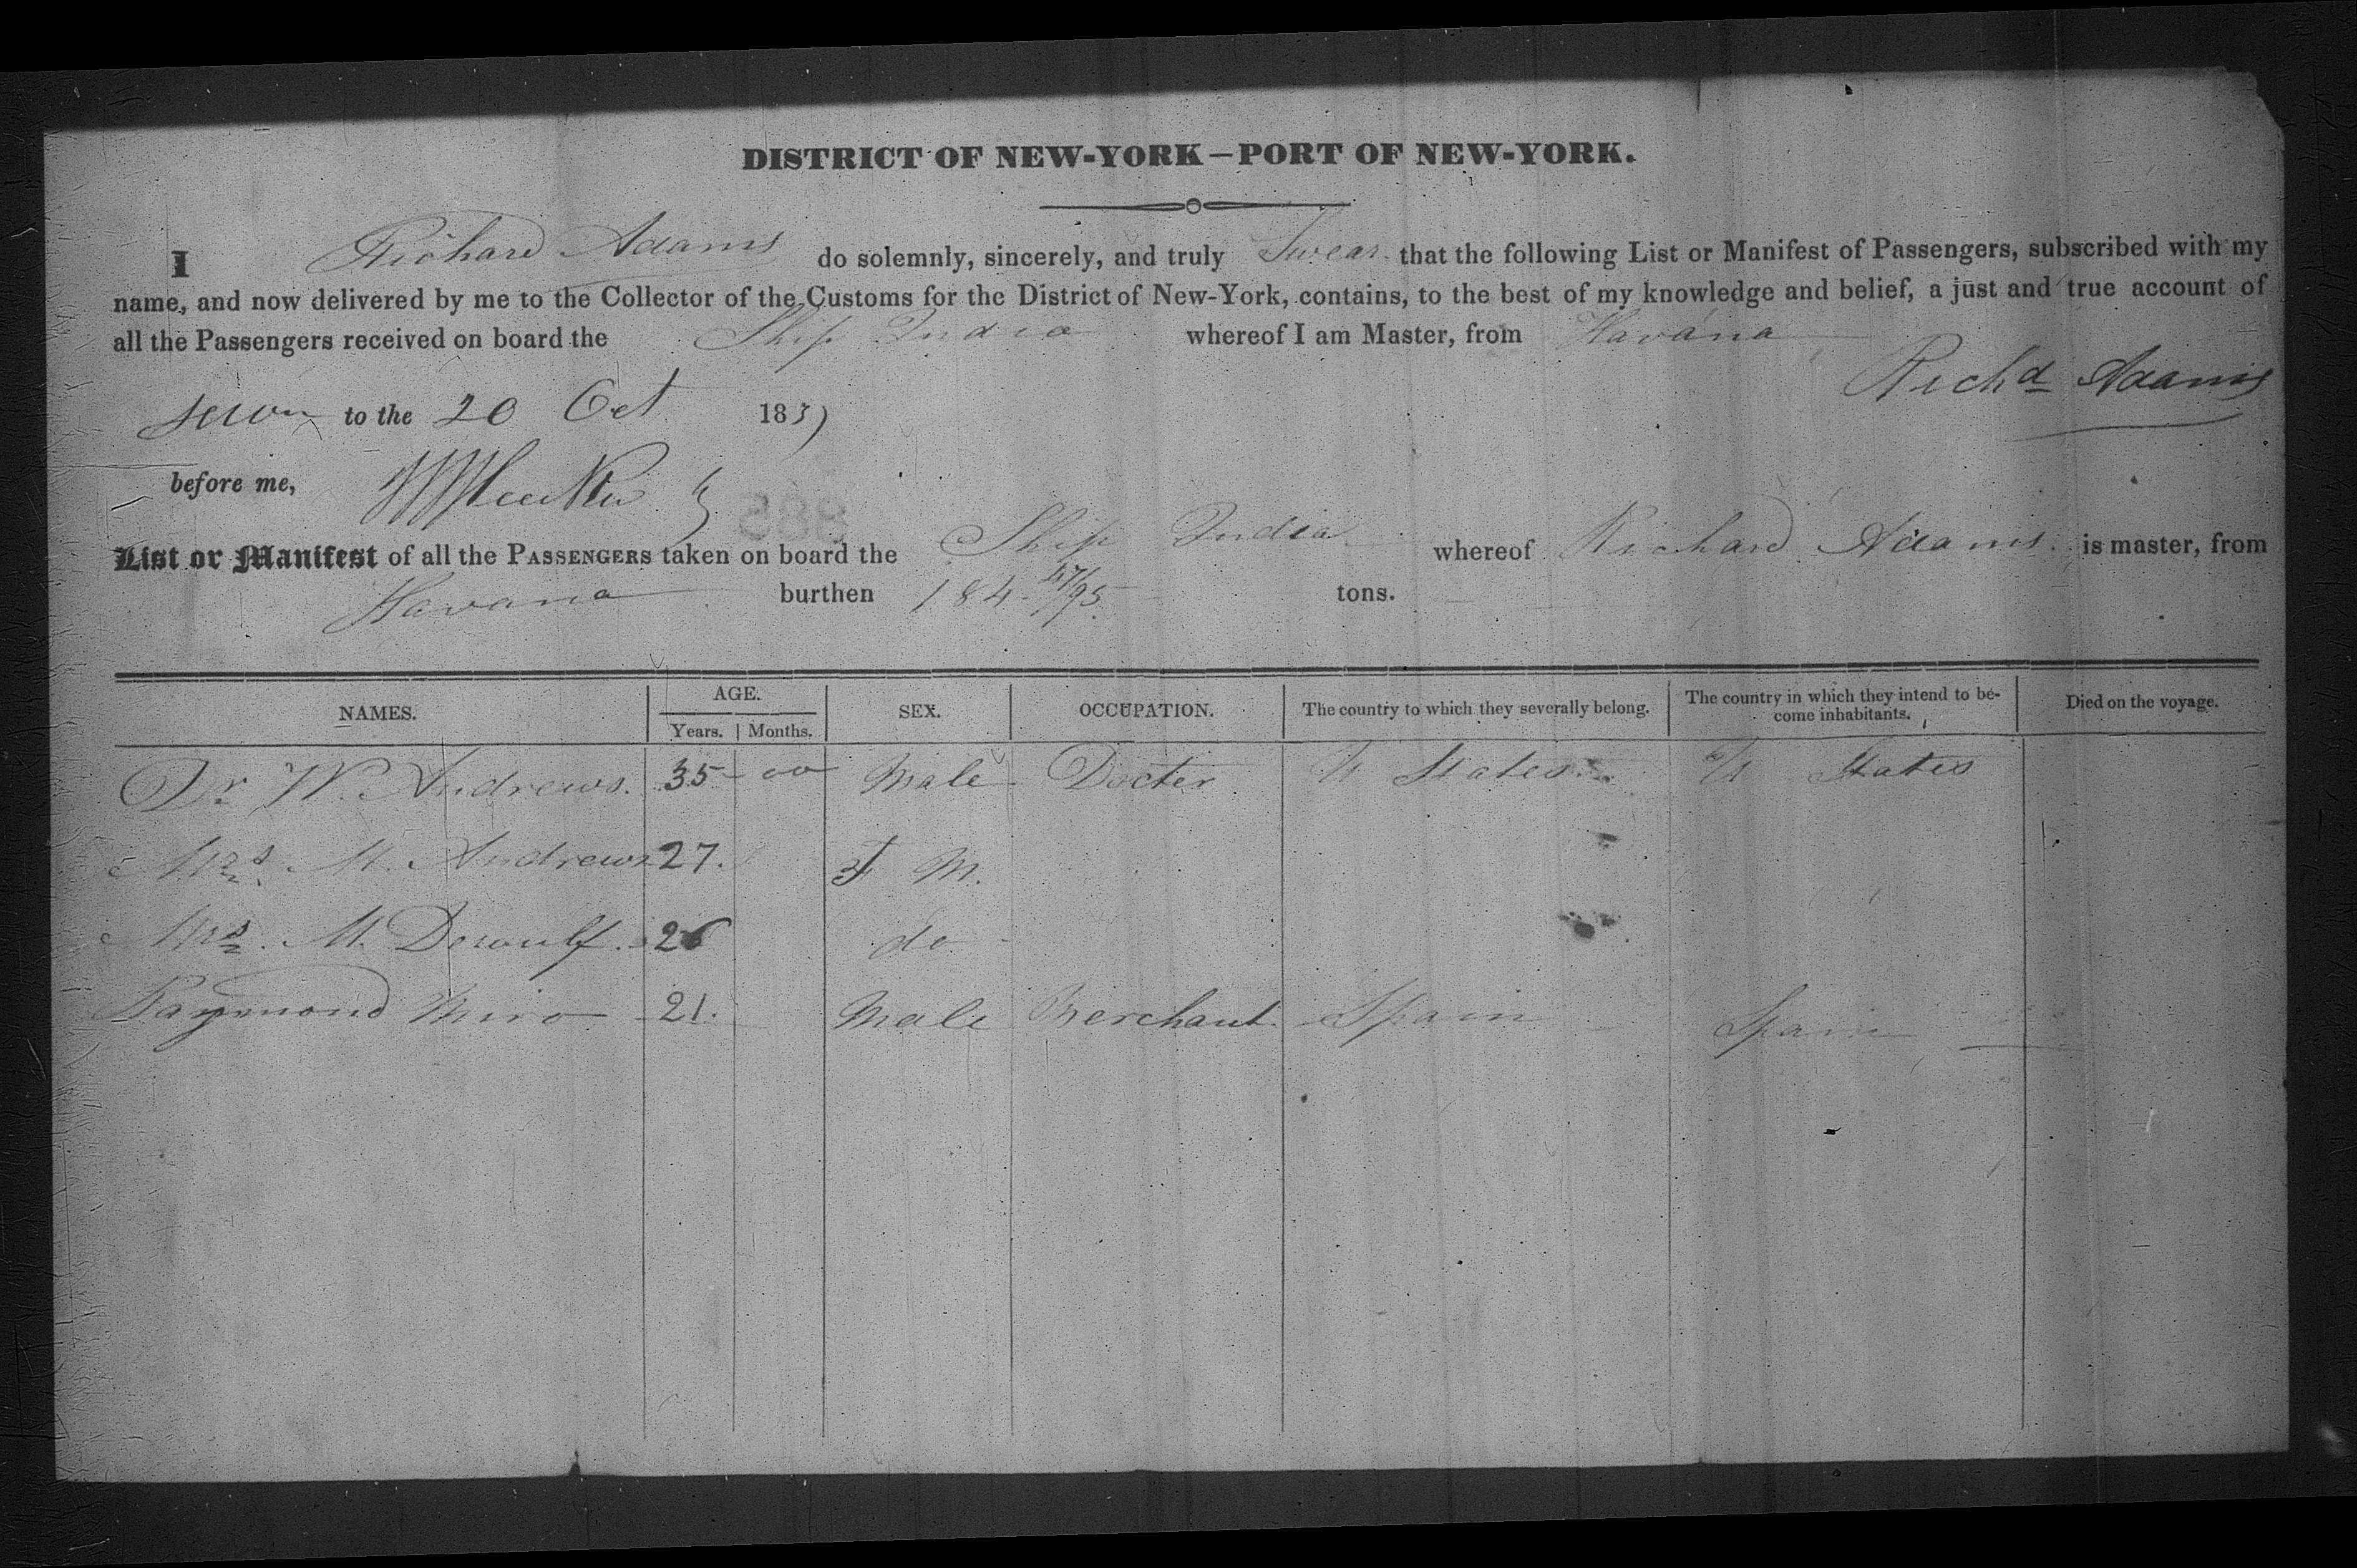 DISTRICT OF NEW-YORK – PORT OF NEW-YORK.
I Richard Adams do solemnly, sincerely, and truly Swear that the following List or Manifest of Passengers, subscribed with my
name, and now delivered by me to the Collector of the Customs for the District of New-York, contains, to the best of my knowledge and belief, a just and true account of
all the Passengers received on board the Ship India whereof I am Master, from Havana
Richd Adams
sworn to the 20 Oct 183
before me,
List or Manifest of all the PASSENGERS taken on board the Ship India whereof Richard Adams is master, from
Havana burthen 184 47/95 tons.
NAMES. AGE. Years. Months. SEX. OCCUPATION. The country to which they severally belong. The country in which they intend to be-
come inhabitants. Died on the voyage.
Dr W. Andrews. 35 00 Male Docter U States U States
Mrs. M. Andrews 27.
Mrs. M. Dewulf. 26 do
Raymond Miro 21. Male Merchant Spain Spain